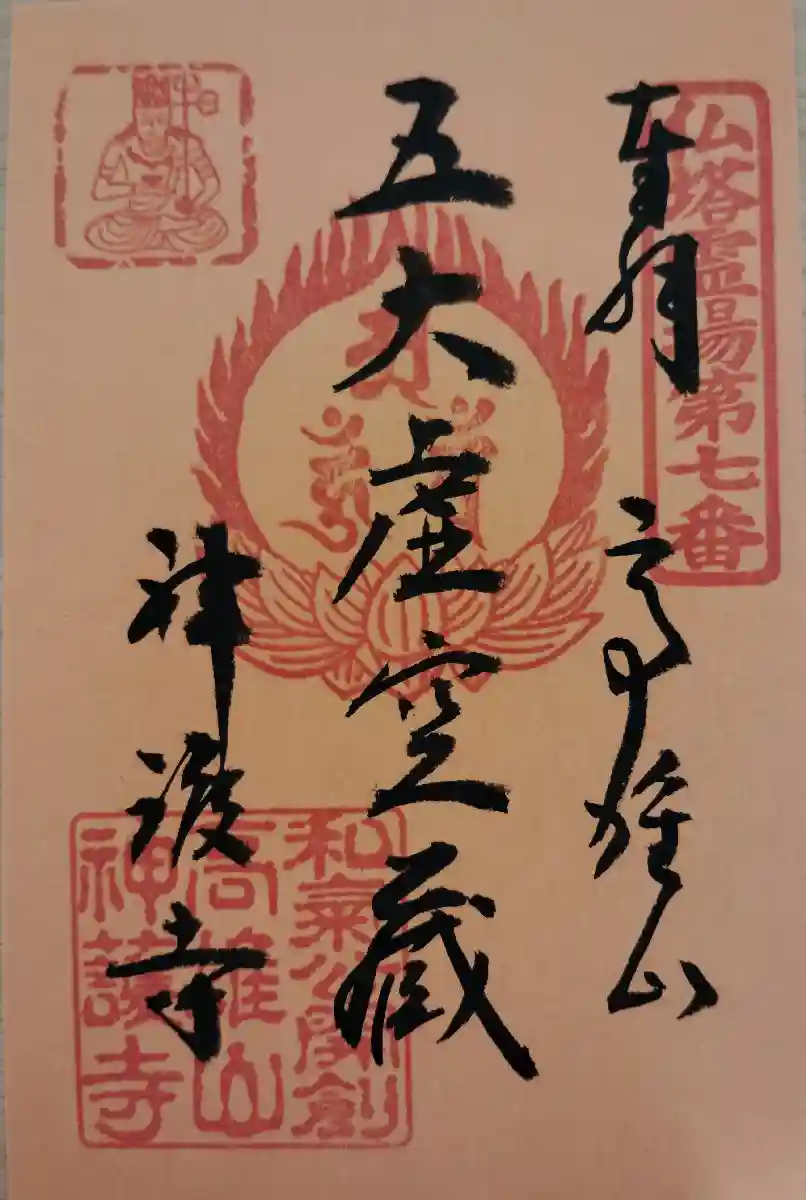 仏塔霊場第七番
奉拝
高雄山
五大虚空蔵
神護寺
和氣公開創
高雄山
神護寺